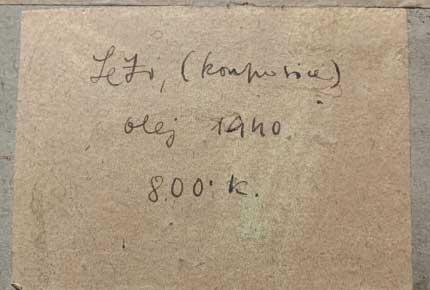 (komposice)
olej 1940.
800· k.